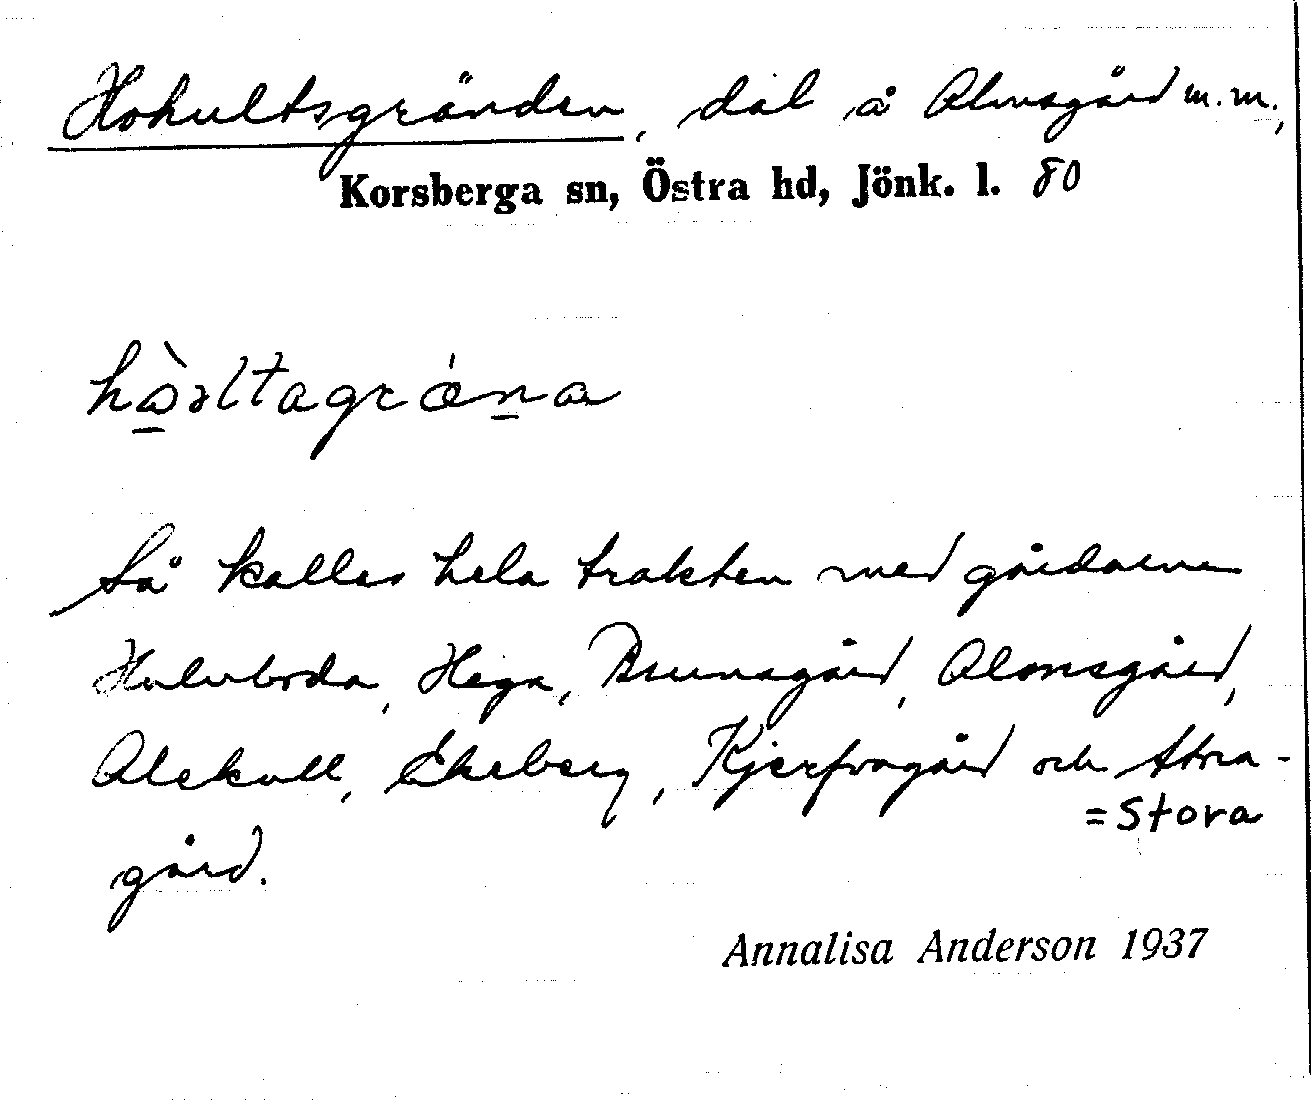 Hokultsgränden, dal å Almsgård m.m.,
Korsberga sn, Östra hd, Jönk. l. 80
Så kallas hela trakten med gårdarna
Hulvboda, Haga, Brunsgård, Almsgård,
Alekull, Ekeberg, Kjerfvagård och Stora-
= Stora
gård.
Annalisa Anderson 1937